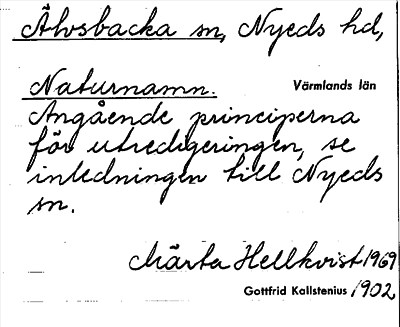 Älvsbacka sn, Nyeds hd,
Naturnamn. Värmlands län
Angående principerna
för utredigeringen, se
inledningen till Nyeds
sn.
Märta Hellkvist 1969
Gottfrid Kallstenius 1902